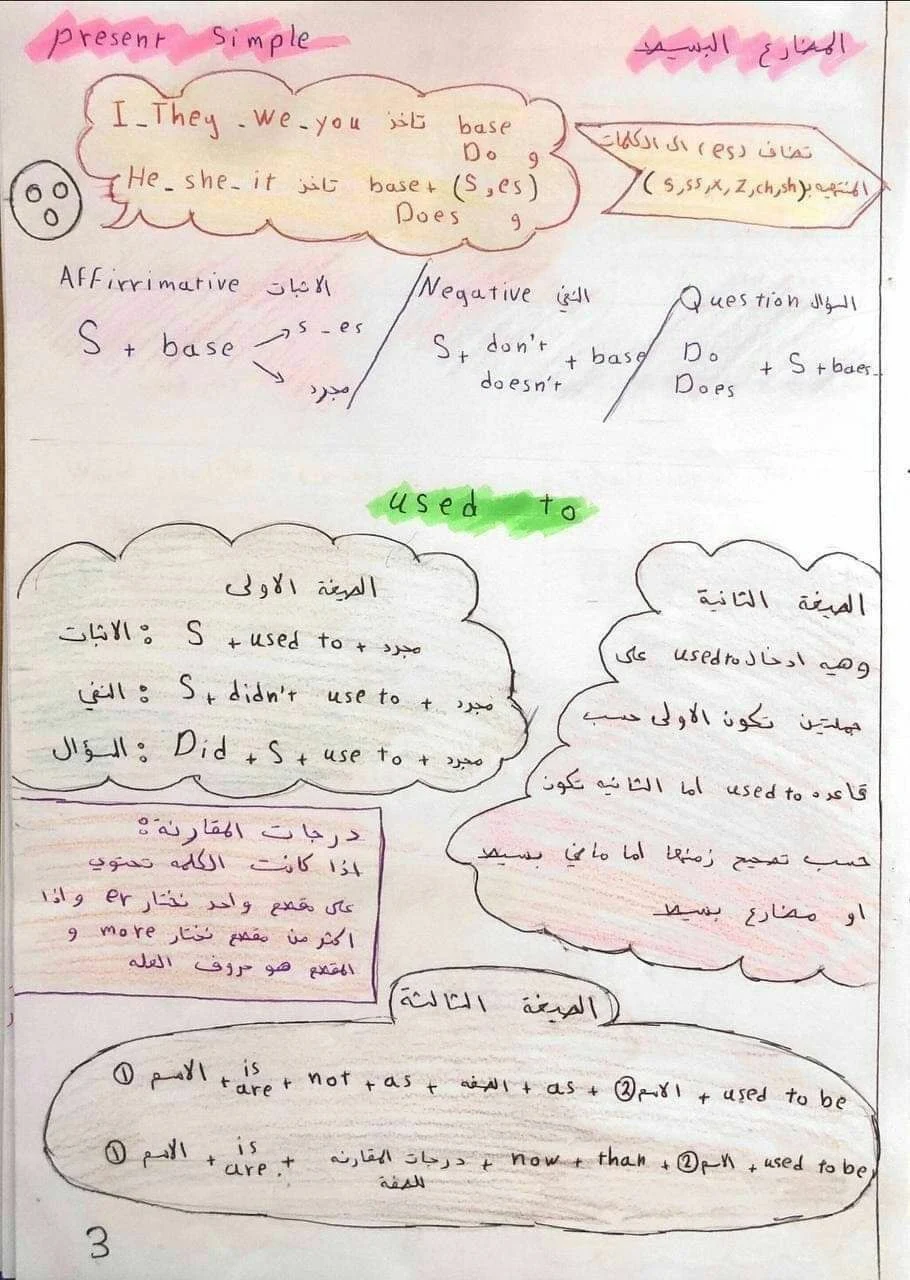 present Simple
المضارع البسيط
I_They_we_you تاخذ base
و Do
He_she_it تاخذ base+ (S,es)
و Does
تضاف (es) الى الكلمات
المنتهيه ب(s,ss,x,z,ch,sh)
Affirrimative الاثبات
S + base
s_es
مجرد
Negative النفي
S+ don't + base
doesn't
Question السؤال
Do + S + baes
Does
used to
الصيغة الاولى
الاثبات : S + used to + مجرد
النفي : S+ didn't use to + مجرد
السؤال : Did + S + use to + مجرد
الصيغة الثانية
وهيه ادخال used to على
جملتين تكون الاولى حسب
قاعده used to اما الثانيه تكون
حسب تصحيح زمنها اما ماضي بسيط
او مضارع بسيط
درجات المقارنة :
اذا كانت الكلمه تحتوي
على مقطع واحد نختار er واذا
اكثر من مقطع نختار more و
المقطع هو حروف العله
الصيغة الثالثة
① الاسم + is + not + as + الصفه + as + ② الاسم + used to be
are
① الاسم + is + درجات المقارنه + now + than + ② الاسم + used to be
are. للصفة
3